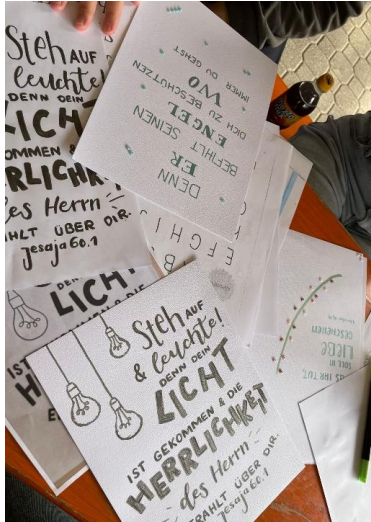 Steh AUF
leuchte!
DENN DEIN
ICHT
OMMEN &
RLICHKE
des Herrn
AHLT ÜBER DIR.
Jesaja 60.1
DENN
ER
BEFIHLT SEINEN
ENGEL
DICH ZU BESCHÜTZEN
WO
IMMER DU GEHST
E F G H I J
LICHT
IST
& DIE
H
Steh AUF
& leuchte!
DENN DEIN
LICHT
IST GEKOMMEN & DIE
HERRLICHKEIT
des Herrn
TRAHLT ÜBER DIR.
Jesaja 60.1
S IHR TUT,
SOLL IN
LIEBE
GESCHEHEN